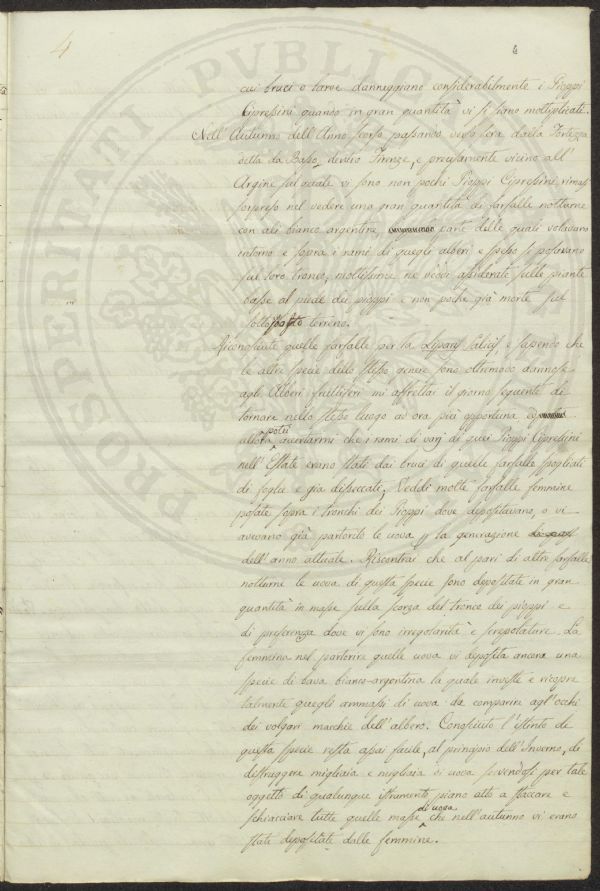 4
4
cui bruci o larve danneggiano considerabilmente i Pioppi
Cipressini quando in gran quantità vi si siano moltiplicate.
Nell'Autunno dell'Anno scorso passando verso sera dalla Fortezza
detta da Basso, dentro Firenze, e precisamente vicino all'
Argine sul quale vi sono non pochi Pioppi Cipressini, rimasi
sorpreso nel vedere una gran quantità di farfalle notturne
con ali bianco argentine, parte delle quali volavano
intorno e sopra i rami di quegli alberi e spesso si posavano
sul loro tronco, moltissime ne veddi assiderate sulle piante
basse al piede dei pioppi e non poche già morte sul
sottoposto terreno.
Riconosciute quelle farfalle per la Liparis Salicis, e sapendo che
le altre specie dello stesso genere sono oltremodo dannose
agli Alberi fruttiferi mi affrettai il giorno seguente di
tornare nello stesso luogo ad ora più opportuna e
allora potei accertarmi che i rami di varj di quei Pioppi Cipressini
nell'Estate erano stati dai bruci di quelle farfalle spogliati
di foglie e già disseccati, Veddi molte farfalle femmine
posate sopra i tronchi dei Pioppi dove depositavano, o vi
avevano già partorito le uova p la generazione
dell'anno attuale. Riscontrai che al pari di altre farfalle
notturne le uova di questa specie sono depositate in gran
quantità in masse sulla scorza del tronco dei pioppi e
di preferenza dove vi sono irregolarità e screpolature. La
femmina nel partorire quelle uova vi deposita ancora una
specie di bava bianco-argentina la quale investe e ricopre
talmente quegli ammassi di uova da comparire agl'occhi
dei volgari macchie dell'albero. Conosciuto l'istinto di
questa specie resta assai facile, al principio dell'Inverno, di
distruggere migliaia e migliaia di uova servendosi per tale
oggetto di qualunque istrumento piano atto a staccare e
schiacciare tutte quelle masse di uova che nell'autunno vi erano
state depositate dalle femmine.
PROSPERITATI PVBLICAE